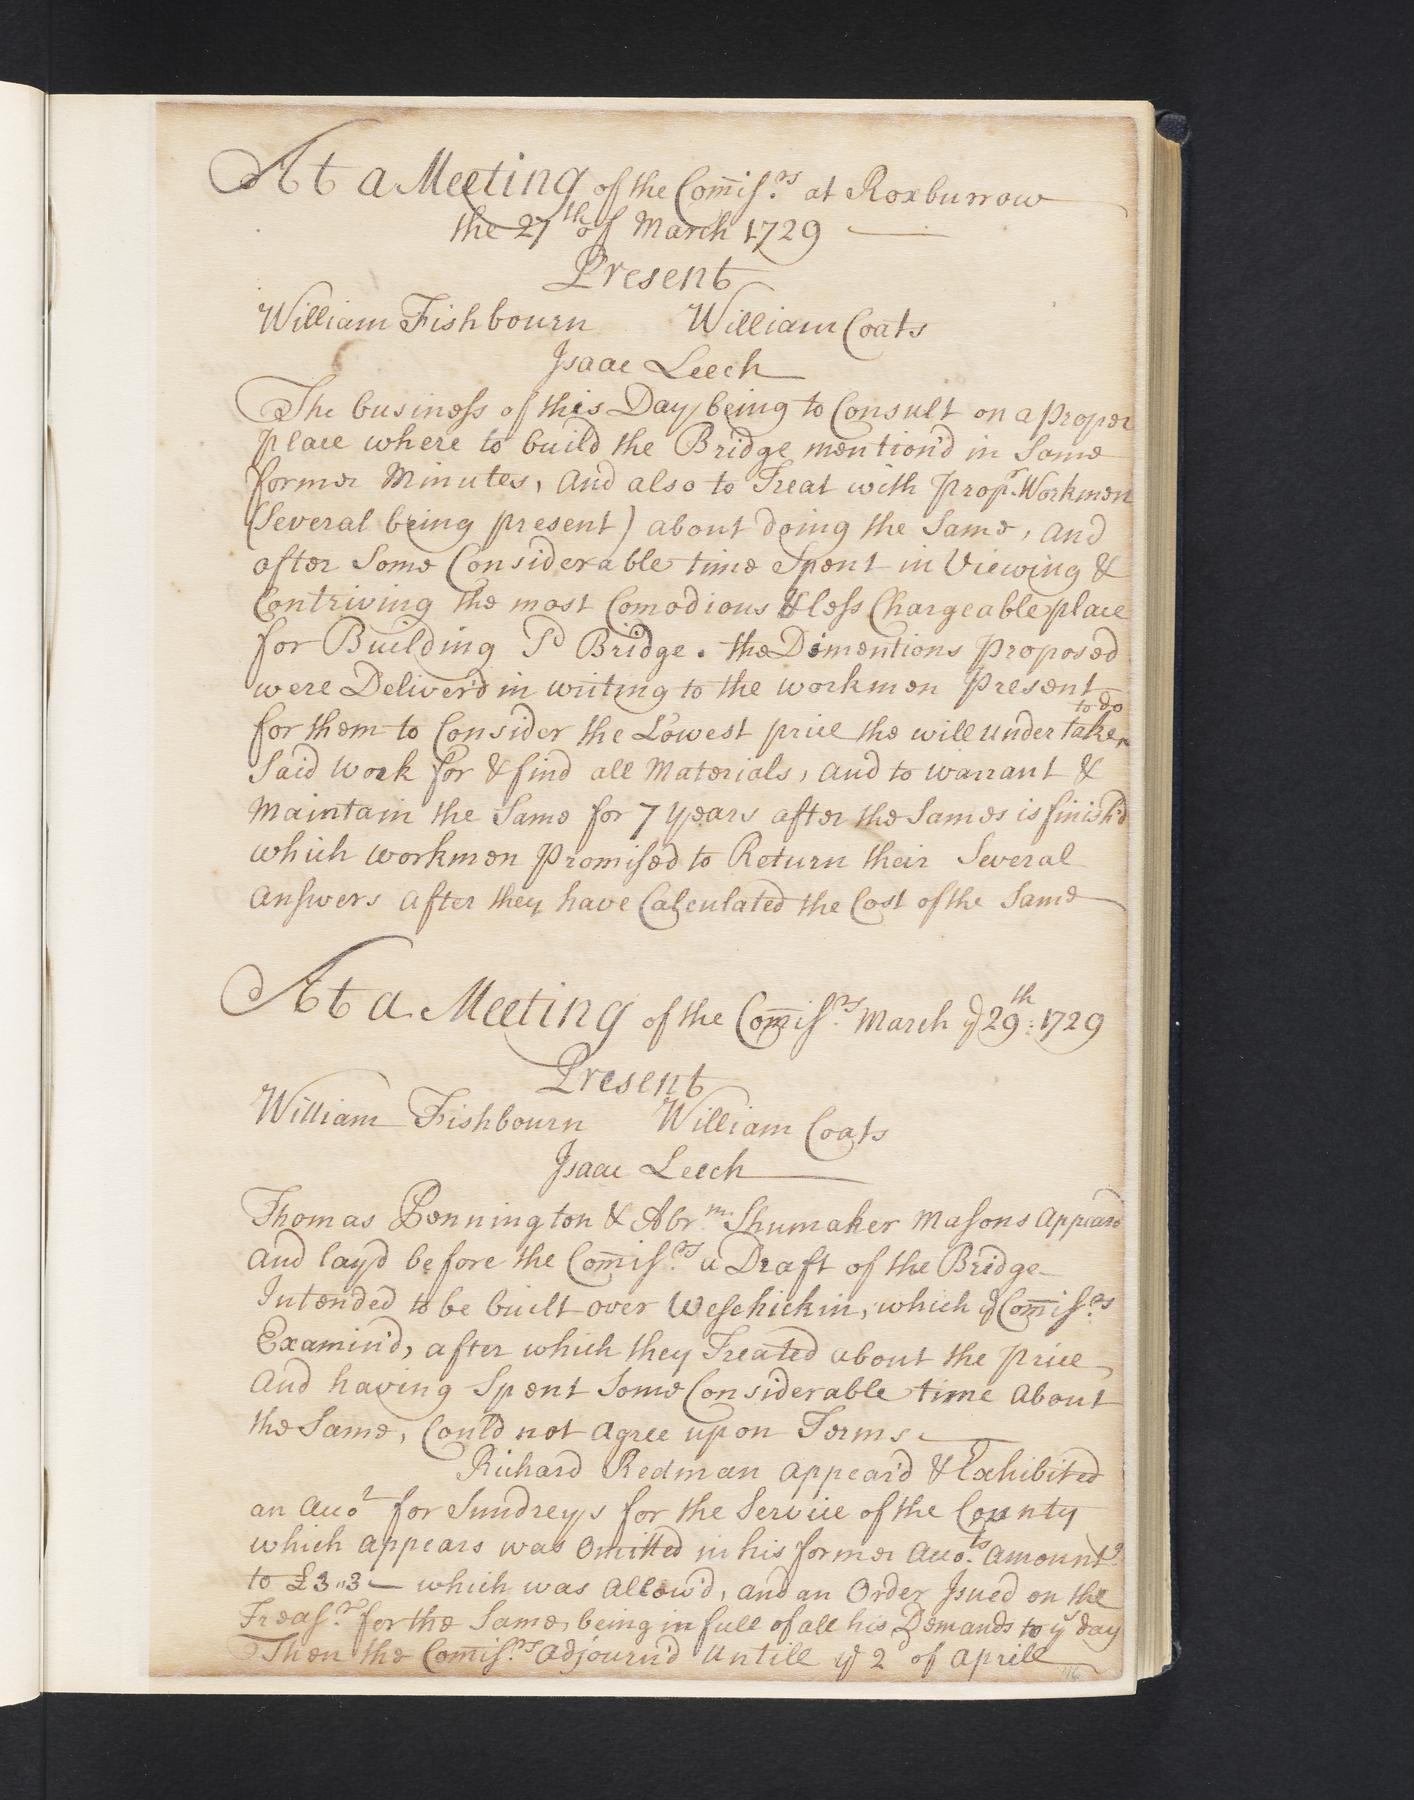 At a Meeting of the Com̄iss.rs at Roxburrow
the 27th of March 1729
Present
William Fishbourn William Coats
Isaac Leech
The business of this Day being to Consult on a Proper
place where to build the Bridge mention'd in Some
former Minutes, And also to Treat with prop.r Workmen
(Several being present) about doing the Same, and
after Some Considerable time Spent in Viewing &
Contriving the most Comodious & less Chargeable place
for Building Sd Bridge. the Dimentions Proposed
were Deliver'd in writing to the workmen Present
to do
for them to Consider the Lowest price the will under take
Said work for & find all Materials, and to warrant &
Maintain the Same for 7 years after the Sames is finish'd
which workmen Promised to Return their Several
Answers after they have Calculated the Cost of the Same
At a Meeting of the Com̄iss.rs March ye 29th: 1729
Present
William Fishbourn William Coats
Isaac Leech
Thomas Pennington & Abr.m Shumaker Masons Appeard
And lay'd before the Com̄iss.rs a Draft of the Bridge
Intended to be built over Wesehickin, which ye Com̄iss.rs
Examin'd, after which they Treated about the price
And having Spent Some Considerable time About
the Same, Could not Agree upon Terms
Richard Redman appear'd & Exhibited
an Acco.t for Sundreys for the Service of the County
which appears was Omitted in his former Acco.ts amount.g
to £3"3 — which was Allow'd, and an Order Isued on the
Treas.r for the Same, being in full of all his Demands to ys day
Then the Com̄iss.rs Adjourn'd Untill ye 2d of Aprill